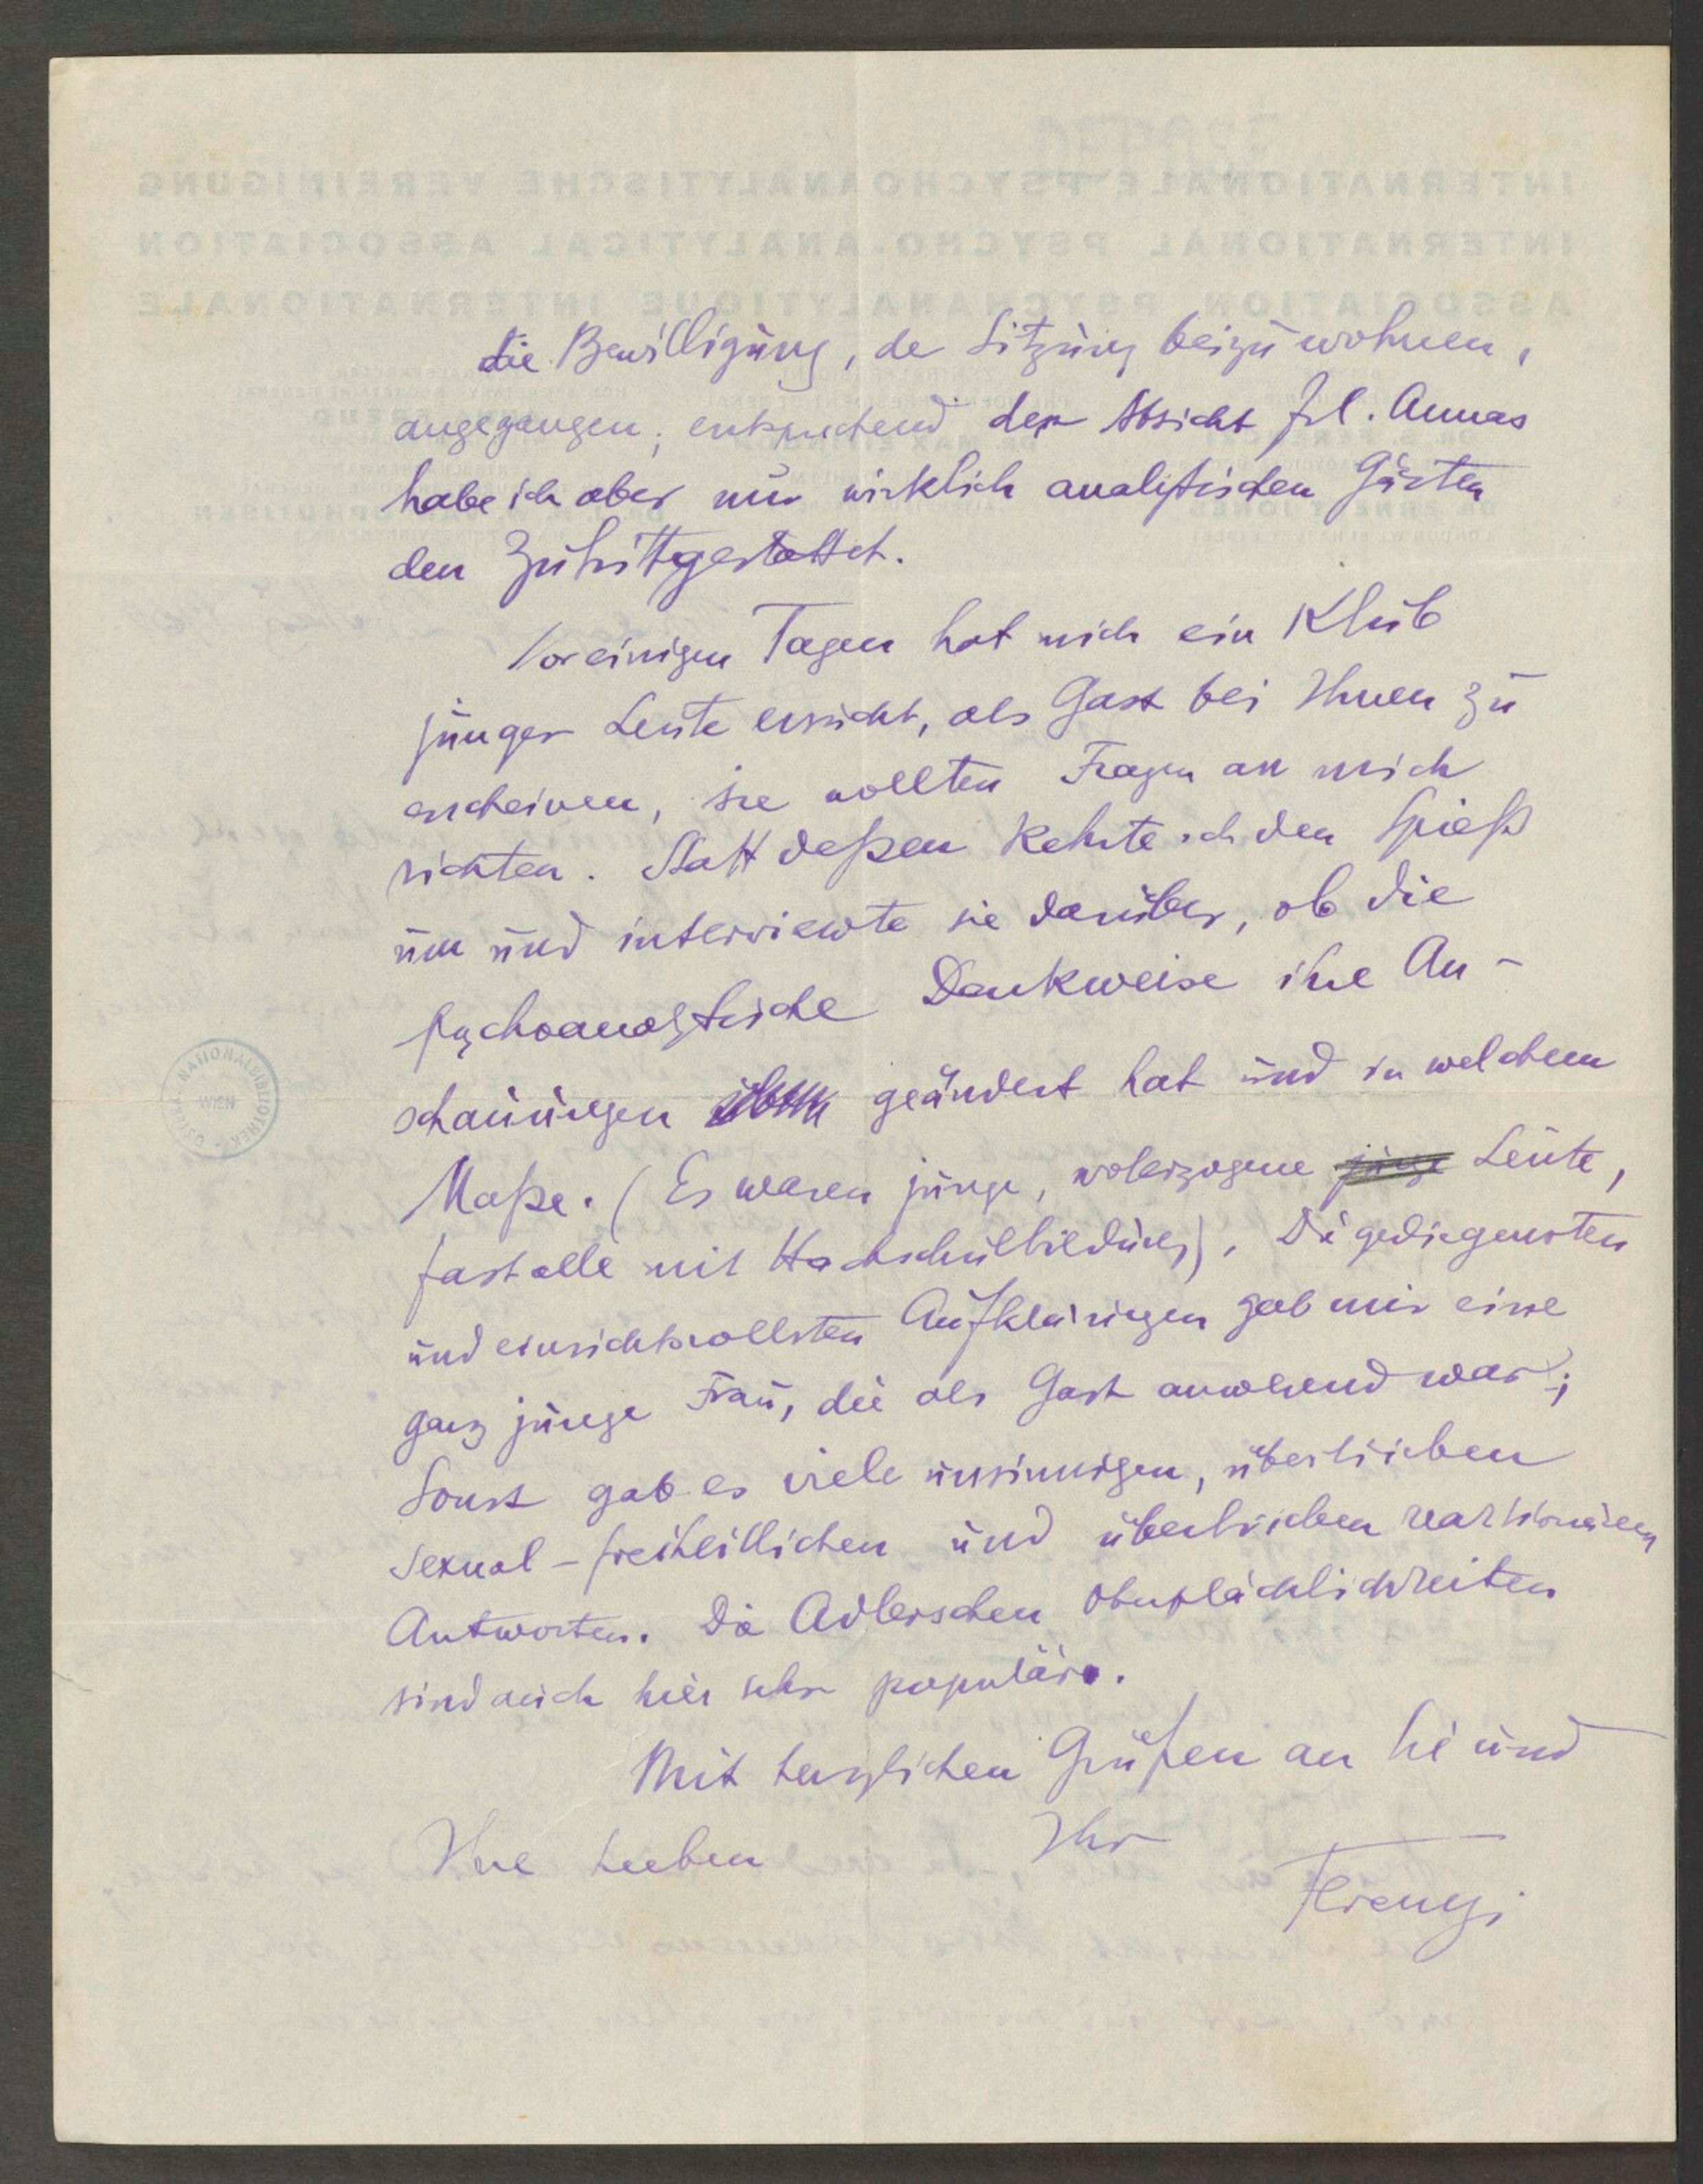 die Bewilligung, der Sitzung beizuwohnen,
angegangen; entsprechend der Absicht Frl. Annas
habe ich aber nur wirklich analytischen Gästen
den Zutritt gestattet.
Vor einigen Tagen hat mich ein Klub
junger Leute ersucht, als Gast bei Ihnen zu
erscheinen, sie wollten Fragen an mich
richten. Statt deßen kehrte ich den Spieß
um und interviewte sie darüber, ob die
psychoanalytische Denkweise ihre An-
schauungen geändert hat und in welchem
Maße. (Es waren junge, wolerzogene junge Leute,
fast alle mit Hochschulbildung). Die gediegensten
und einsichtsvollsten Aufklärungen gab mir eine
ganz junge Frau, die als Gast anwesend war;
Sonst gab es viele unsinnigen, übertrieben
sexual-freiheitlichen und übertrieben reaktionären
Antworten. Die Adlerschen Oberflächlichkeiten
sind auch hier sehr populär.
Mit herzlichen Grüßen an Sie und
Ihre Lieben Ihr
Ferenczi
INTERNATIONALE PSYCHOANALYTISCHE VEREINIGUNG
INTERNATIONAL PSYCHO-ANALYTICAL ASSOCIATION
ASSOCIATION PSYCHANALYTIQUE INTERNATIONALE
NATIONALBIBLIOTHEK
WIEN